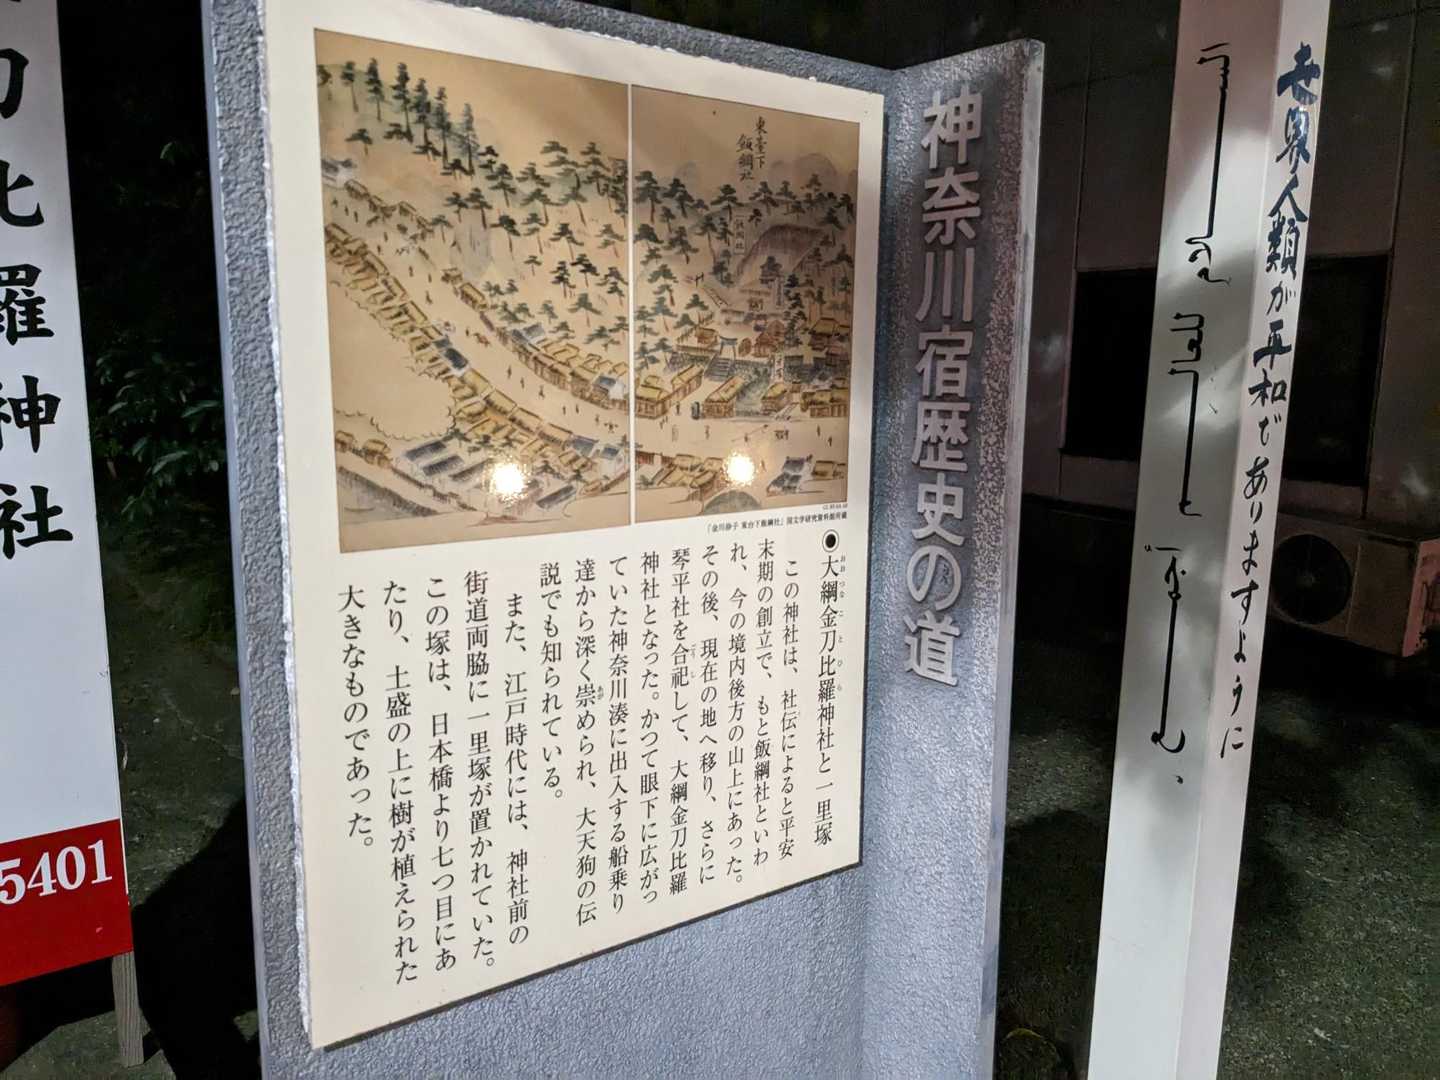 神奈川宿歴史の道
東臺下
飯綱社
「金川砂子 東台下飯綱社」国文学研究資料館所蔵
◉大綱金刀比羅神社と一里塚
おおつなことひら
この神社は、社伝によると平安
末期の創立で、もと飯綱社といわ
れ、今の境内後方の山上にあった。
その後、現在の地へ移り、さらに
琴平社を合祀して、大綱金刀比羅
ごうし
神社となった。かつて眼下に広がっ
ていた神奈川湊に出入する船乗り
達から深く崇められ、大天狗の伝
あが
説でも知られている。
また、江戸時代には、神社前の
街道両脇に一里塚が置かれていた。
この塚は、日本橋より七つ目にあ
たり、土盛の上に樹が植えられた
大きなものであった。
世界人類が平和でありますように
刀比羅神社
5401